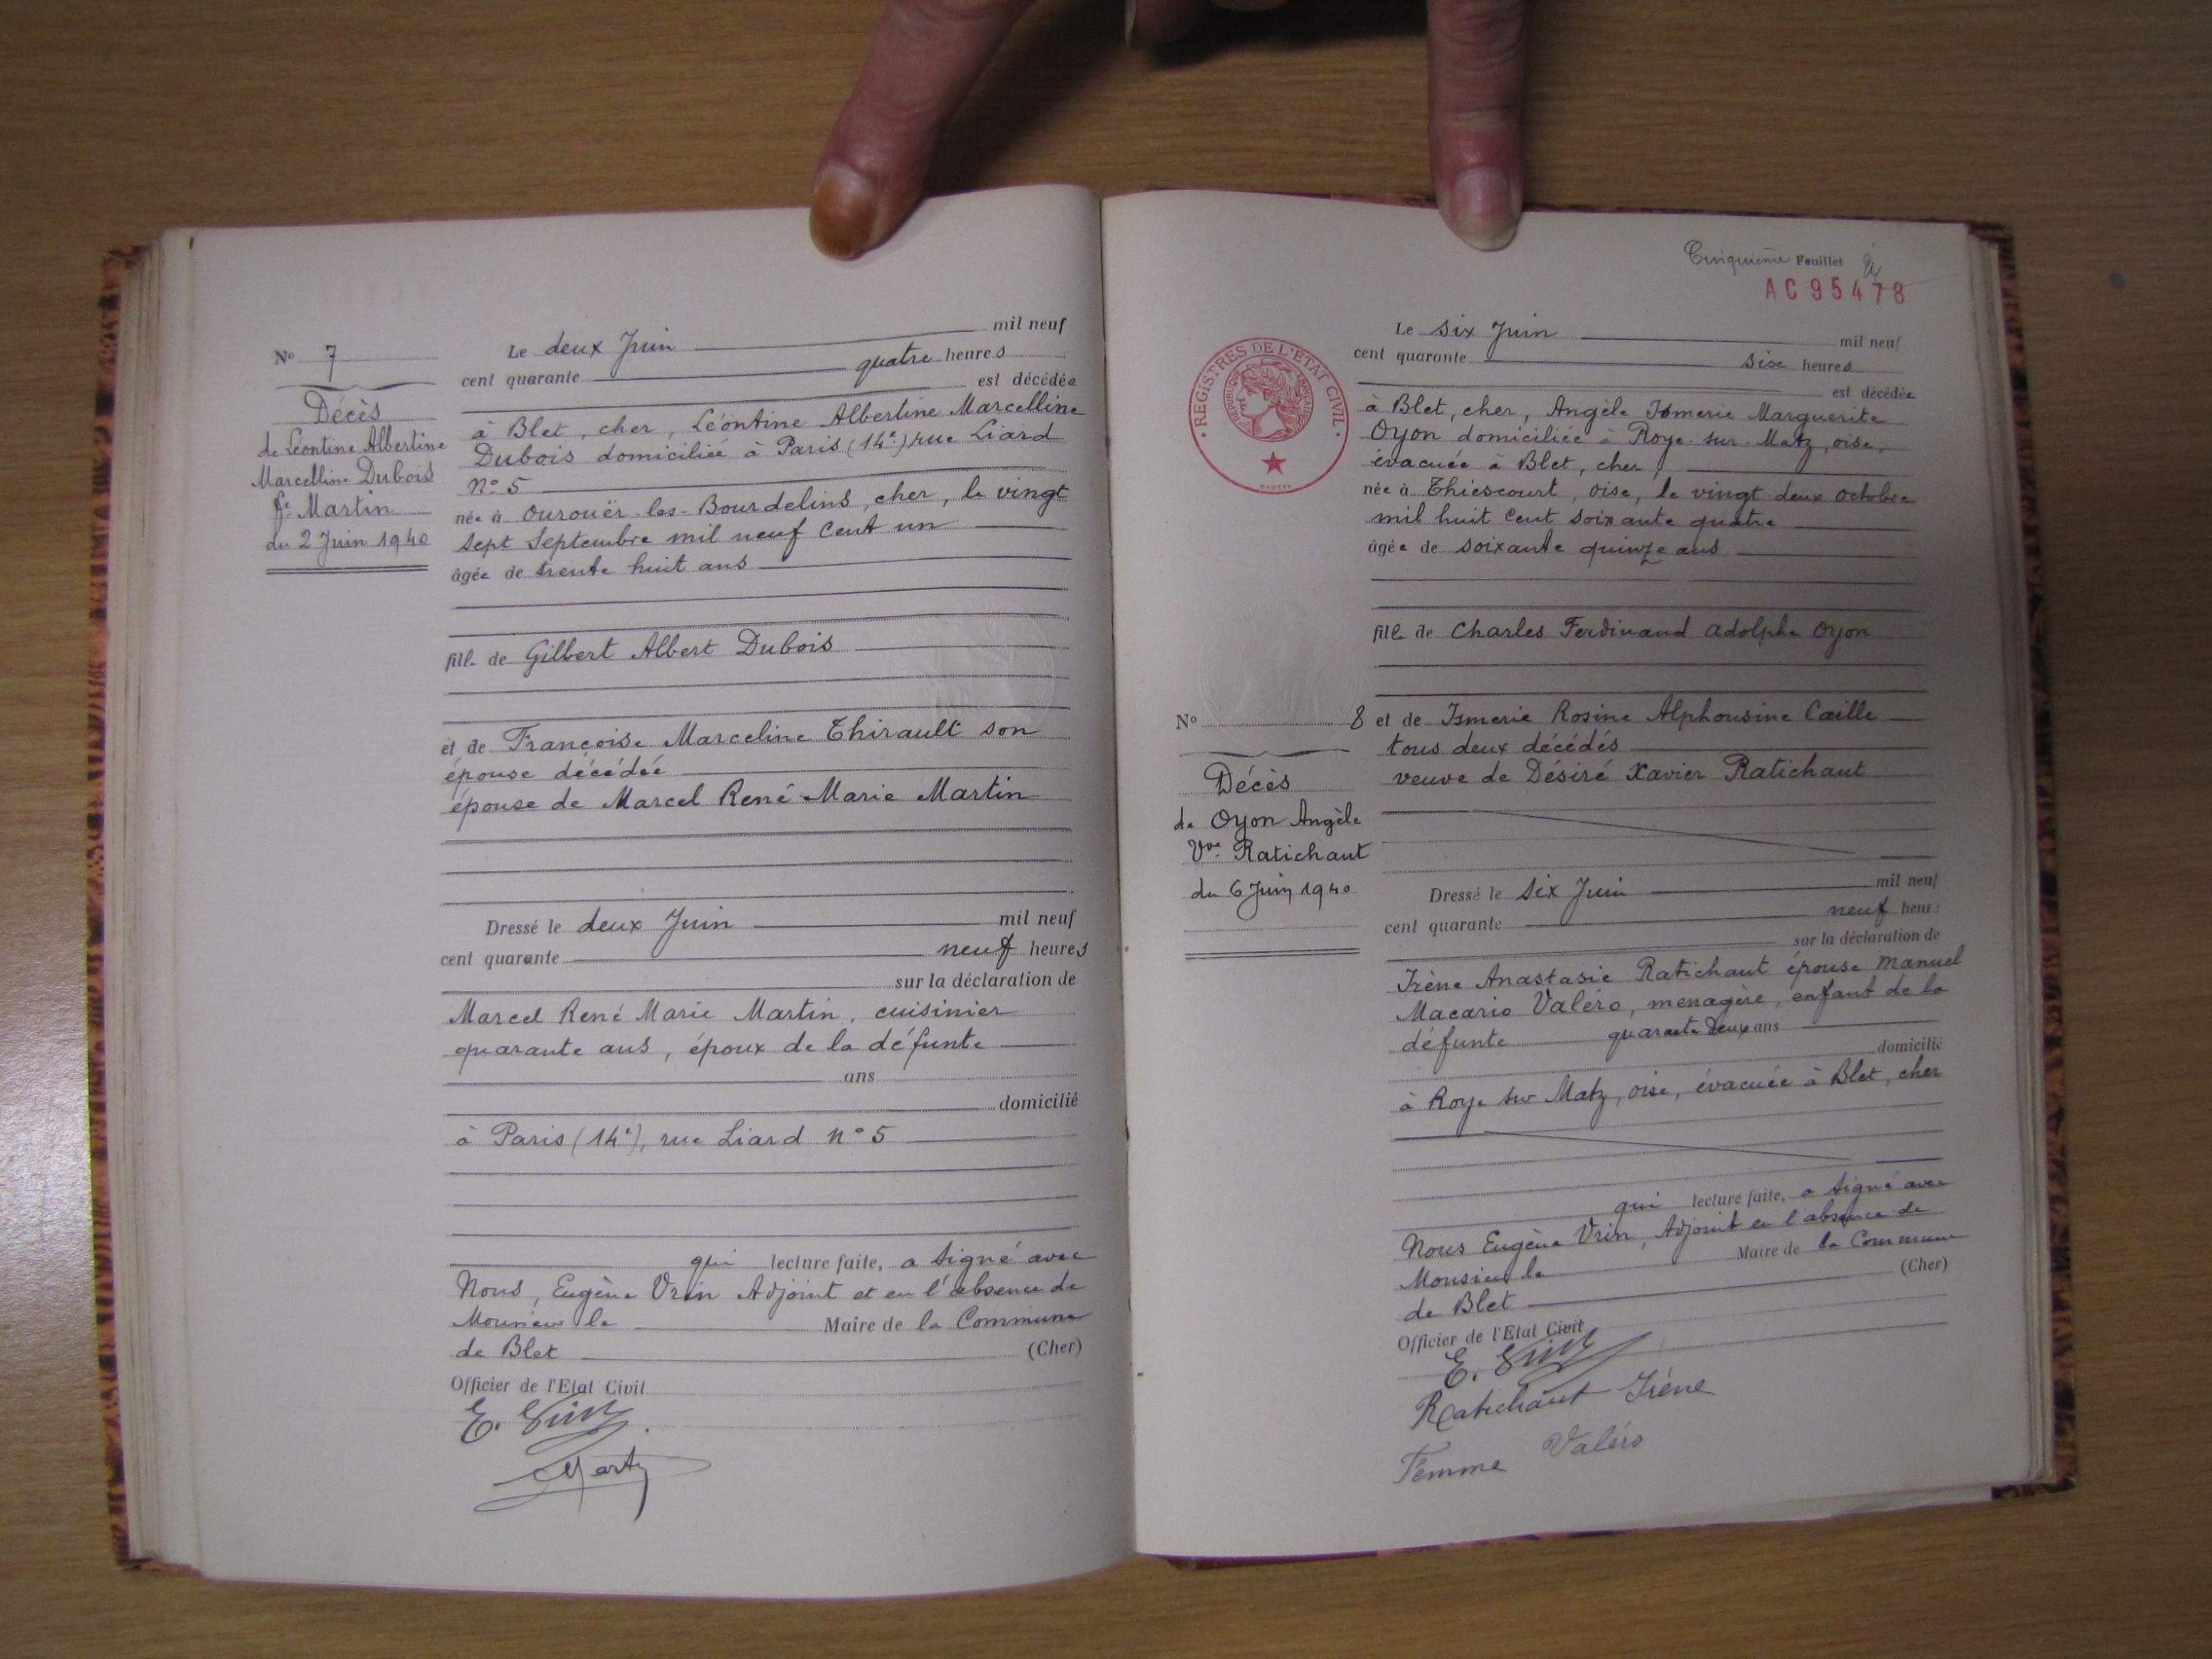 N° 7
Décès
de Léontine Albertine
Marcelline Dubois
fe Martin
du 2 Juin 1940
Le deux Juin mil neuf
cent quarante quatre heures
est décédée
à Blet, cher, Léontine Albertine Marcelline
Dubois domiciliée à Paris (14e) rue Liard
n° 5
née à Ourouër-les-Bourdelins, cher, le vingt
sept Septembre mil neuf cent un
âgée de trente huit ans
fille de Gilbert Albert Dubois
et de Françoise Marceline Thirault son
épouse décédée
épouse de Marcel René Marie Martin
Dressé le deux Juin mil neuf
cent quarante neuf heures
sur la déclaration de
Marcel René Marie Martin, cuisinier
quarante ans, époux de la défunte
ans
domicilié
à Paris (14e), rue Liard n° 5
qui lecture faite, a signé avec
Nous, Eugène Vrin Adjoint et en l'absence de
Monsieur le Maire de la Commune
de Blet (Cher)
Officier de l'Etat Civil
E. Vrin
Martin
Cinquième Feuillet
AC 95478
REGISTRES DE L'ÉTAT CIVIL
RÉPUBLIQUE FRANÇAISE
N° 8
Décès
de Oyon Angèle
Vve Ratichaut
du 6 Juin 1940
Le six Juin mil neuf
cent quarante six heures
est décédée
à Blet, cher, Angèle Ismerie Marguerite
Oyon domiciliée à Roye-sur-Matz, oise,
évacuée à Blet, cher,
née à Thiescourt, oise, le vingt-deux octobre
mil huit cent soixante quatre
âgée de soixante quinze ans
fille de Charles Ferdinand Adolphe Oyon
et de Ismerie Rosine Alphonsine Caille
tous deux décédés
veuve de Désiré Xavier Ratichaut
Dressé le six Juin mil neuf
cent quarante neuf heur
sur la déclaration de
Irène Anastasie Ratichaut épouse Manuel
Macario Valéro, menagère, enfant de la
défunte quarante deux ans
domicilié
à Roye sur Matz, oise, évacuée à Blet, cher
qui lecture faite, a signé avec
Nous Eugène Vrin, Adjoint en l'absence de
Monsieur le Maire de la Commune
de Blet (Cher)
Officier de l'Etat Civil
E. Vrin
Ratichaut Irène
Femme Valéro